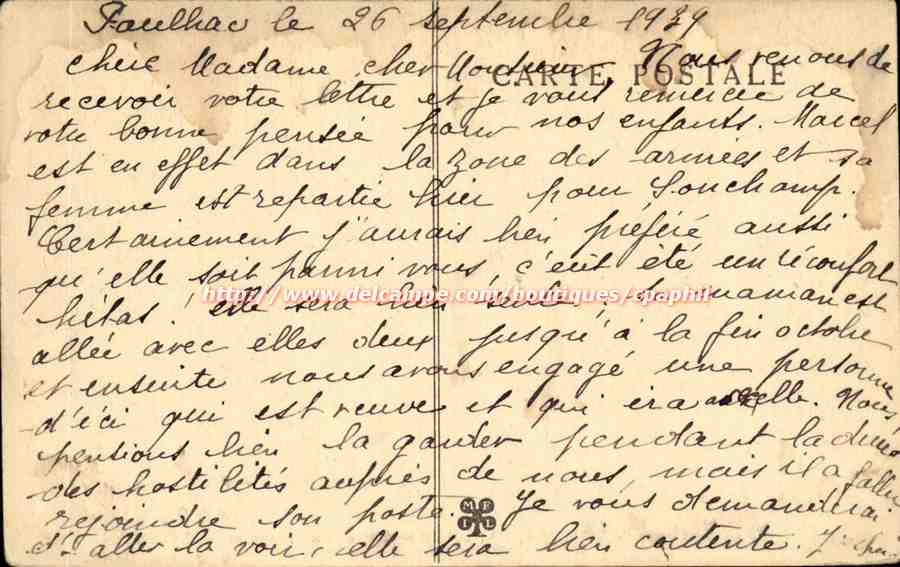 Paulhac le 26 septembre 1939
CARTE POSTALE
Chère Madame, cher Monsieur, Nous venons de
recevoir votre lettre et je vous remercie de
votre bonne pensée pour nos enfants. Marcel
est en effet dans la zone des armées et sa
femme est repartie hier pour Sonchamp.
Certainement j'aurais bien préféré aussi
qu'elle soit parmi vous, c'eût été un réconfort
hélas! elle sera bien seule, sa maman est
http://www.delcampe.com/boutiques/spaphil
allée avec elles deux jusqu'à la fin octobre
et ensuite nous avons engagé une personne
d'ici qui est veuve et qui ira avec elle. Nous
pensions bien la garder pendant la durée
des hostilités auprès de nous, mais il a fallu
rejoindre son poste. Je vous demanderai
d'aller la voir, elle sera bien contente.